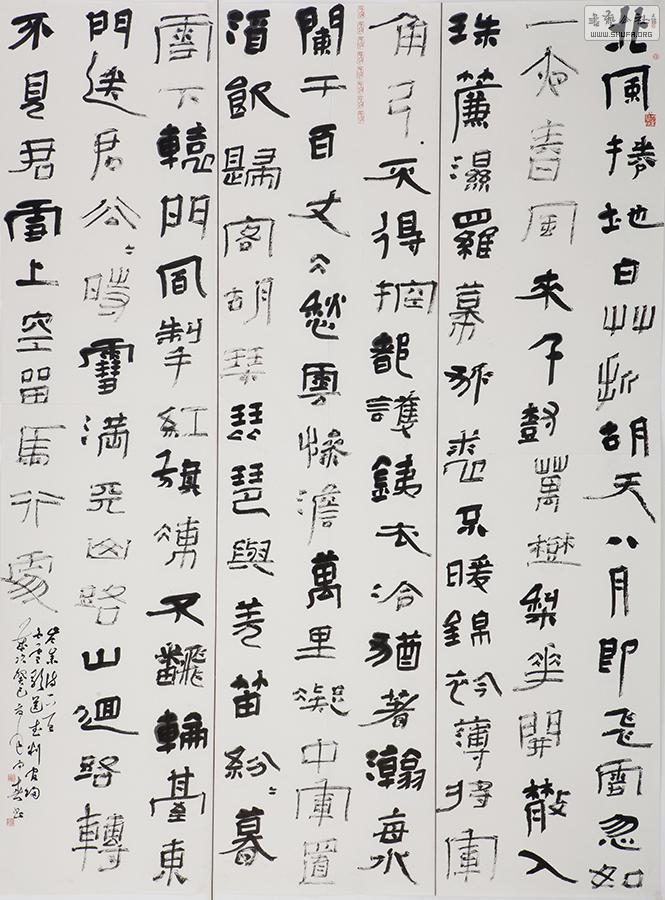 北風捲地白艸折胡天八月即飛雪忽如
一夜春風來千樹萬樹梨華開散入
珠簾濕羅幕狐裘不暖錦衾薄將軍
角弓不得控都護鐵衣冷猶著瀚海
闌干百丈冰愁雲慘澹萬里凝中軍置
酒飲歸客胡琴琵琶與羌笛紛〻暮
雪下轅門風掣紅旗凍不翻輪臺東
門送君去〻時雪滿天山路山迴路轉
不見君雪上空留馬行處
岑參詩一首
白雪歌送武判官歸
歲次癸巳
WWW.SHUFA.ORG